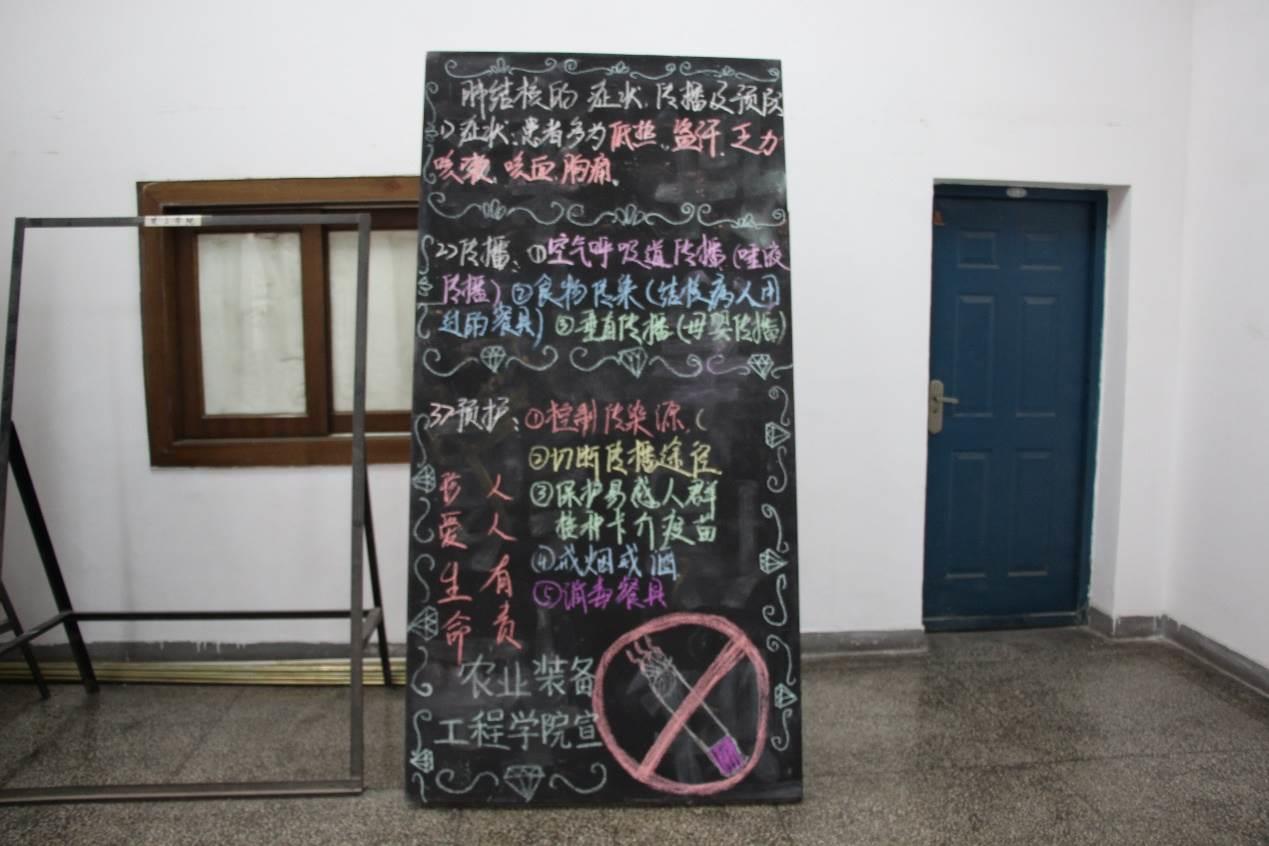 肺结核的症状、传播及预防
1)症状:患者多为低热、盗汗、乏力
咳嗽、咳血、胸痛。
2)传播:①空气呼吸道传播(唾液
传播)②食物传染(结核病人用
过的餐具)③垂直传播(母婴传播)
3)预护:①控制传染源(
②切断传播途径
③保护易感人群
接种卡介疫苗
④戒烟戒酒
⑤消毒餐具
珍爱生命
人人有责
农业装备
工程学院宣